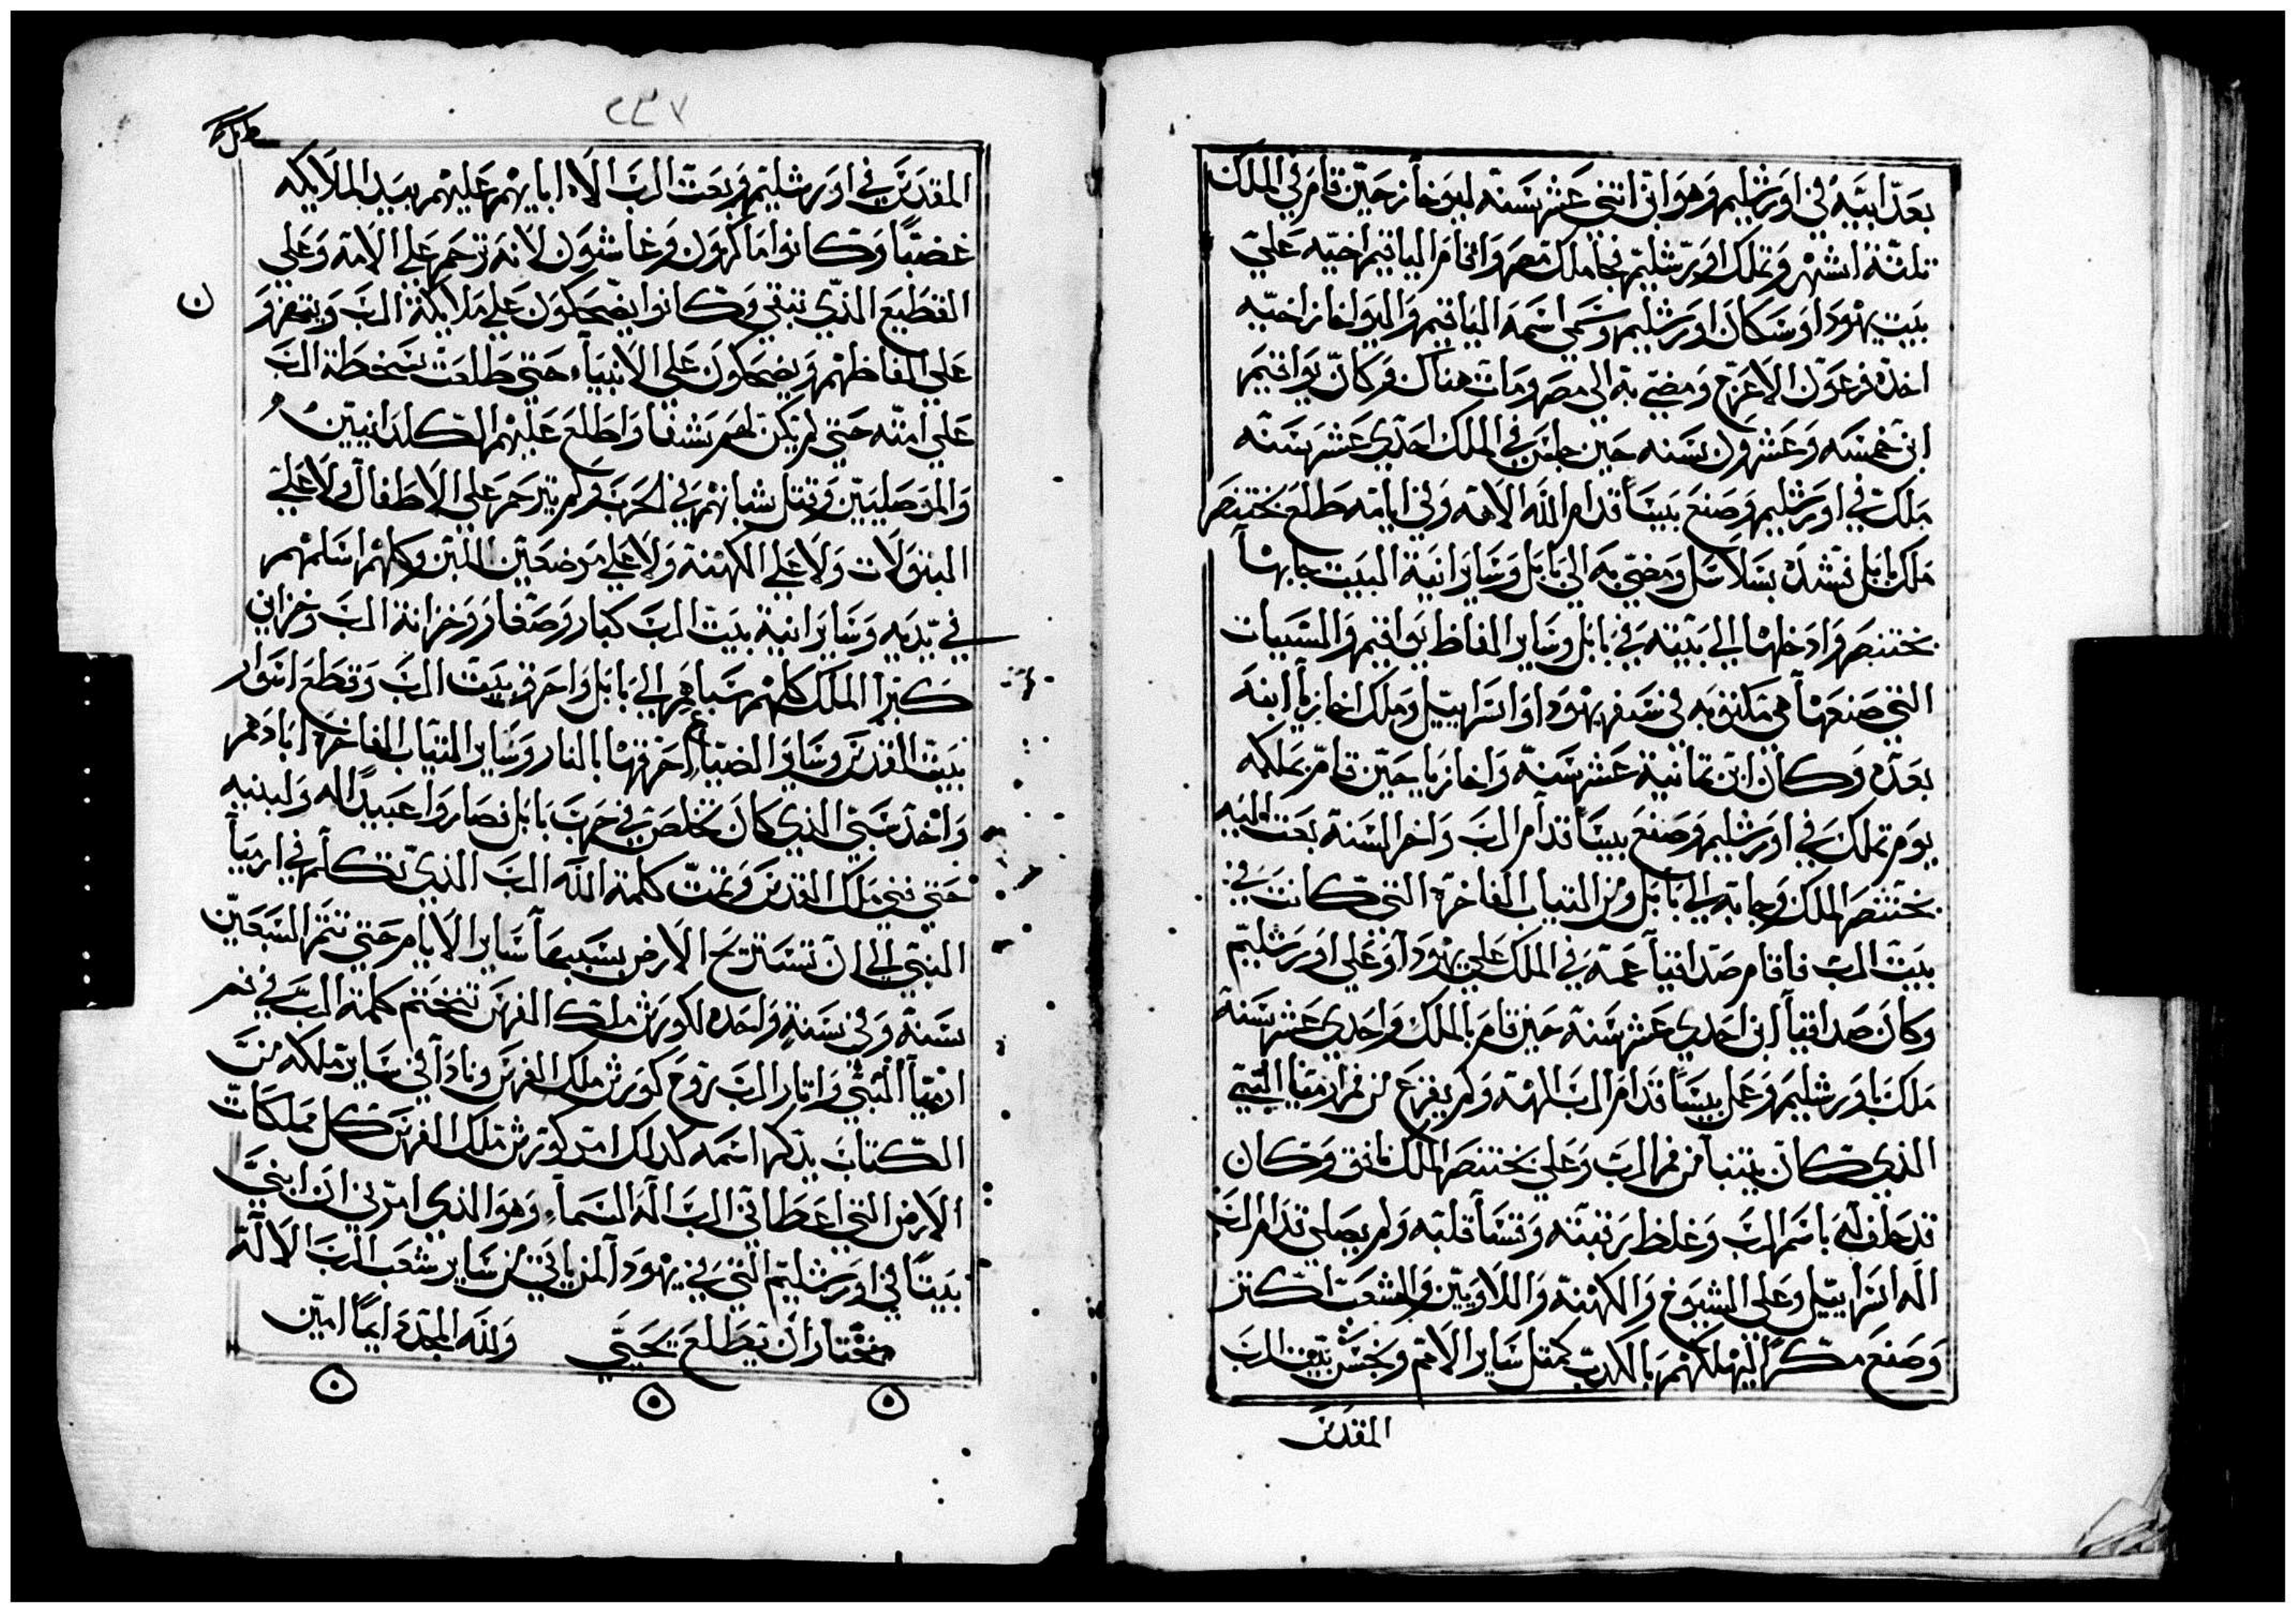 بعد ابيه في اورشليم وهو ابن اثني عشر سنه ليوخاز حين قام في الملك
تلتة اشهر وتملك اورشليم فجا ملك مصر واقام الياقيم اخيه علي
بيت يهودا وسكان اورشليم وسمي اسمه الياقيم واليواخاز اخيه
اخده فرعون الاعرج ومضي به الي مصر ومات هناك وكان يواقيم
ابن خمسه وعشرون سنه حين جلس في الملك احدي عشر سنه
ملك في اورشليم وصنع بيساً قدام الله الاهه وفي ايامه طلع بختنصر
ملك بابل فشده بسلاسل ومضي به الي بابل وساير انية البيت جابها
بختنصر وادخلها الي بيته في بابل وساير الفاظ يواقيم والمسبيات
التي صنعها هي مكتوبه في سفر يهودا واسراييل وملك اخازيا ابنه
بعده وكان ابن تمانية عشر سنه واخازيا حين قام بملكه
يوم تملك في اورشليم وصنع بيساً قدام الرب واخر السنة بعت اليه
بختنصر الملك وجابه الي بابل ومن التياب الفاخرة التي كانت في
بيت الرب فاقام صداقيا عمه في الملك علي يهودا وعلي اورشليم
وكان صداقيا ابن احدي عشر سنة حين قام بالملك واحدي عشر سنة
ملك باورشليم وعمل بيساً قدام الرب الهه ولم يفزع من فم ارميا النبي
الدي كان يتنبا من فم الرب وعلي بختنصر الملك نافق وكان
قد حلف له باسم الرب وغلظ رقبته وقسا قلبه ولم يصلي قدام الرب
اله اسراييل وعلي الشيوخ والكهنه واللاويين والشعب اكتر
وصنع مكراً ليهلكهم بالكدب كمتل ساير الامم ونجس بيت الرب
المقدس
٢٣٧
المقدس في اورشليم وبعت الرب الاه ابايهم عليهم بيد الملايكه
غضباً وكانوا ماكرون وغاشون لانه ترحم علي الامه وعلي
القطيع الدي تبقي وكانوا يضحكون علي ملايكة الرب
علي الفاظهم ويضحكون علي الانبياء حتي طلعت سخطة الرب
علي امته حتي لم يكن لهم شفا واطلع عليهم الكلدانيين
والموصليين وقتل شبانهم في الحرب ولم يترحم علي الاطفال ولا علي
البتولات ولا علي الكهنة ولا علي مرضعين اللبن وكلهم اسلمهم
في يديه وساير انية بيت الرب كبار وصغار وخزانة الرب وخزاين
كبرا الملك كلهم سباهم الي بابل واحرق بيت الرب وقطع اسوار
بيت القدس وساير الضياع احرقها بالنار وساير التياب الفاخره ابادهم
واخد سبي الدي كان تخلص في حرب بابل فصاروا عبيداً له ولبنيه
حتي فني ملك القدس وتمت كلمة الله الرب الدي تكلم في ارميا
النبي الي ان تستريح الارض بسبيها ساير الايام حتي تتم السبعين
سنة وفي سنة واحده لكورش ملك الفرس تختم كلمة الرب في فم
ارميا النبي واتار الرب روح كورش ملك الفرس ونادا في ساير ملكه من
الكتاب يدكر اسمه كدلك امر كورش ملك الفرس كل مملكات
الارض التي اعطاني الرب اله السماء وهو الدي امرني ان ابني
بيتاً في اورشليم التي في يهودا لمن ياتي من ساير شعب الرب الاله
مختار ان يطلع يجي ولله المجد دايماً امين